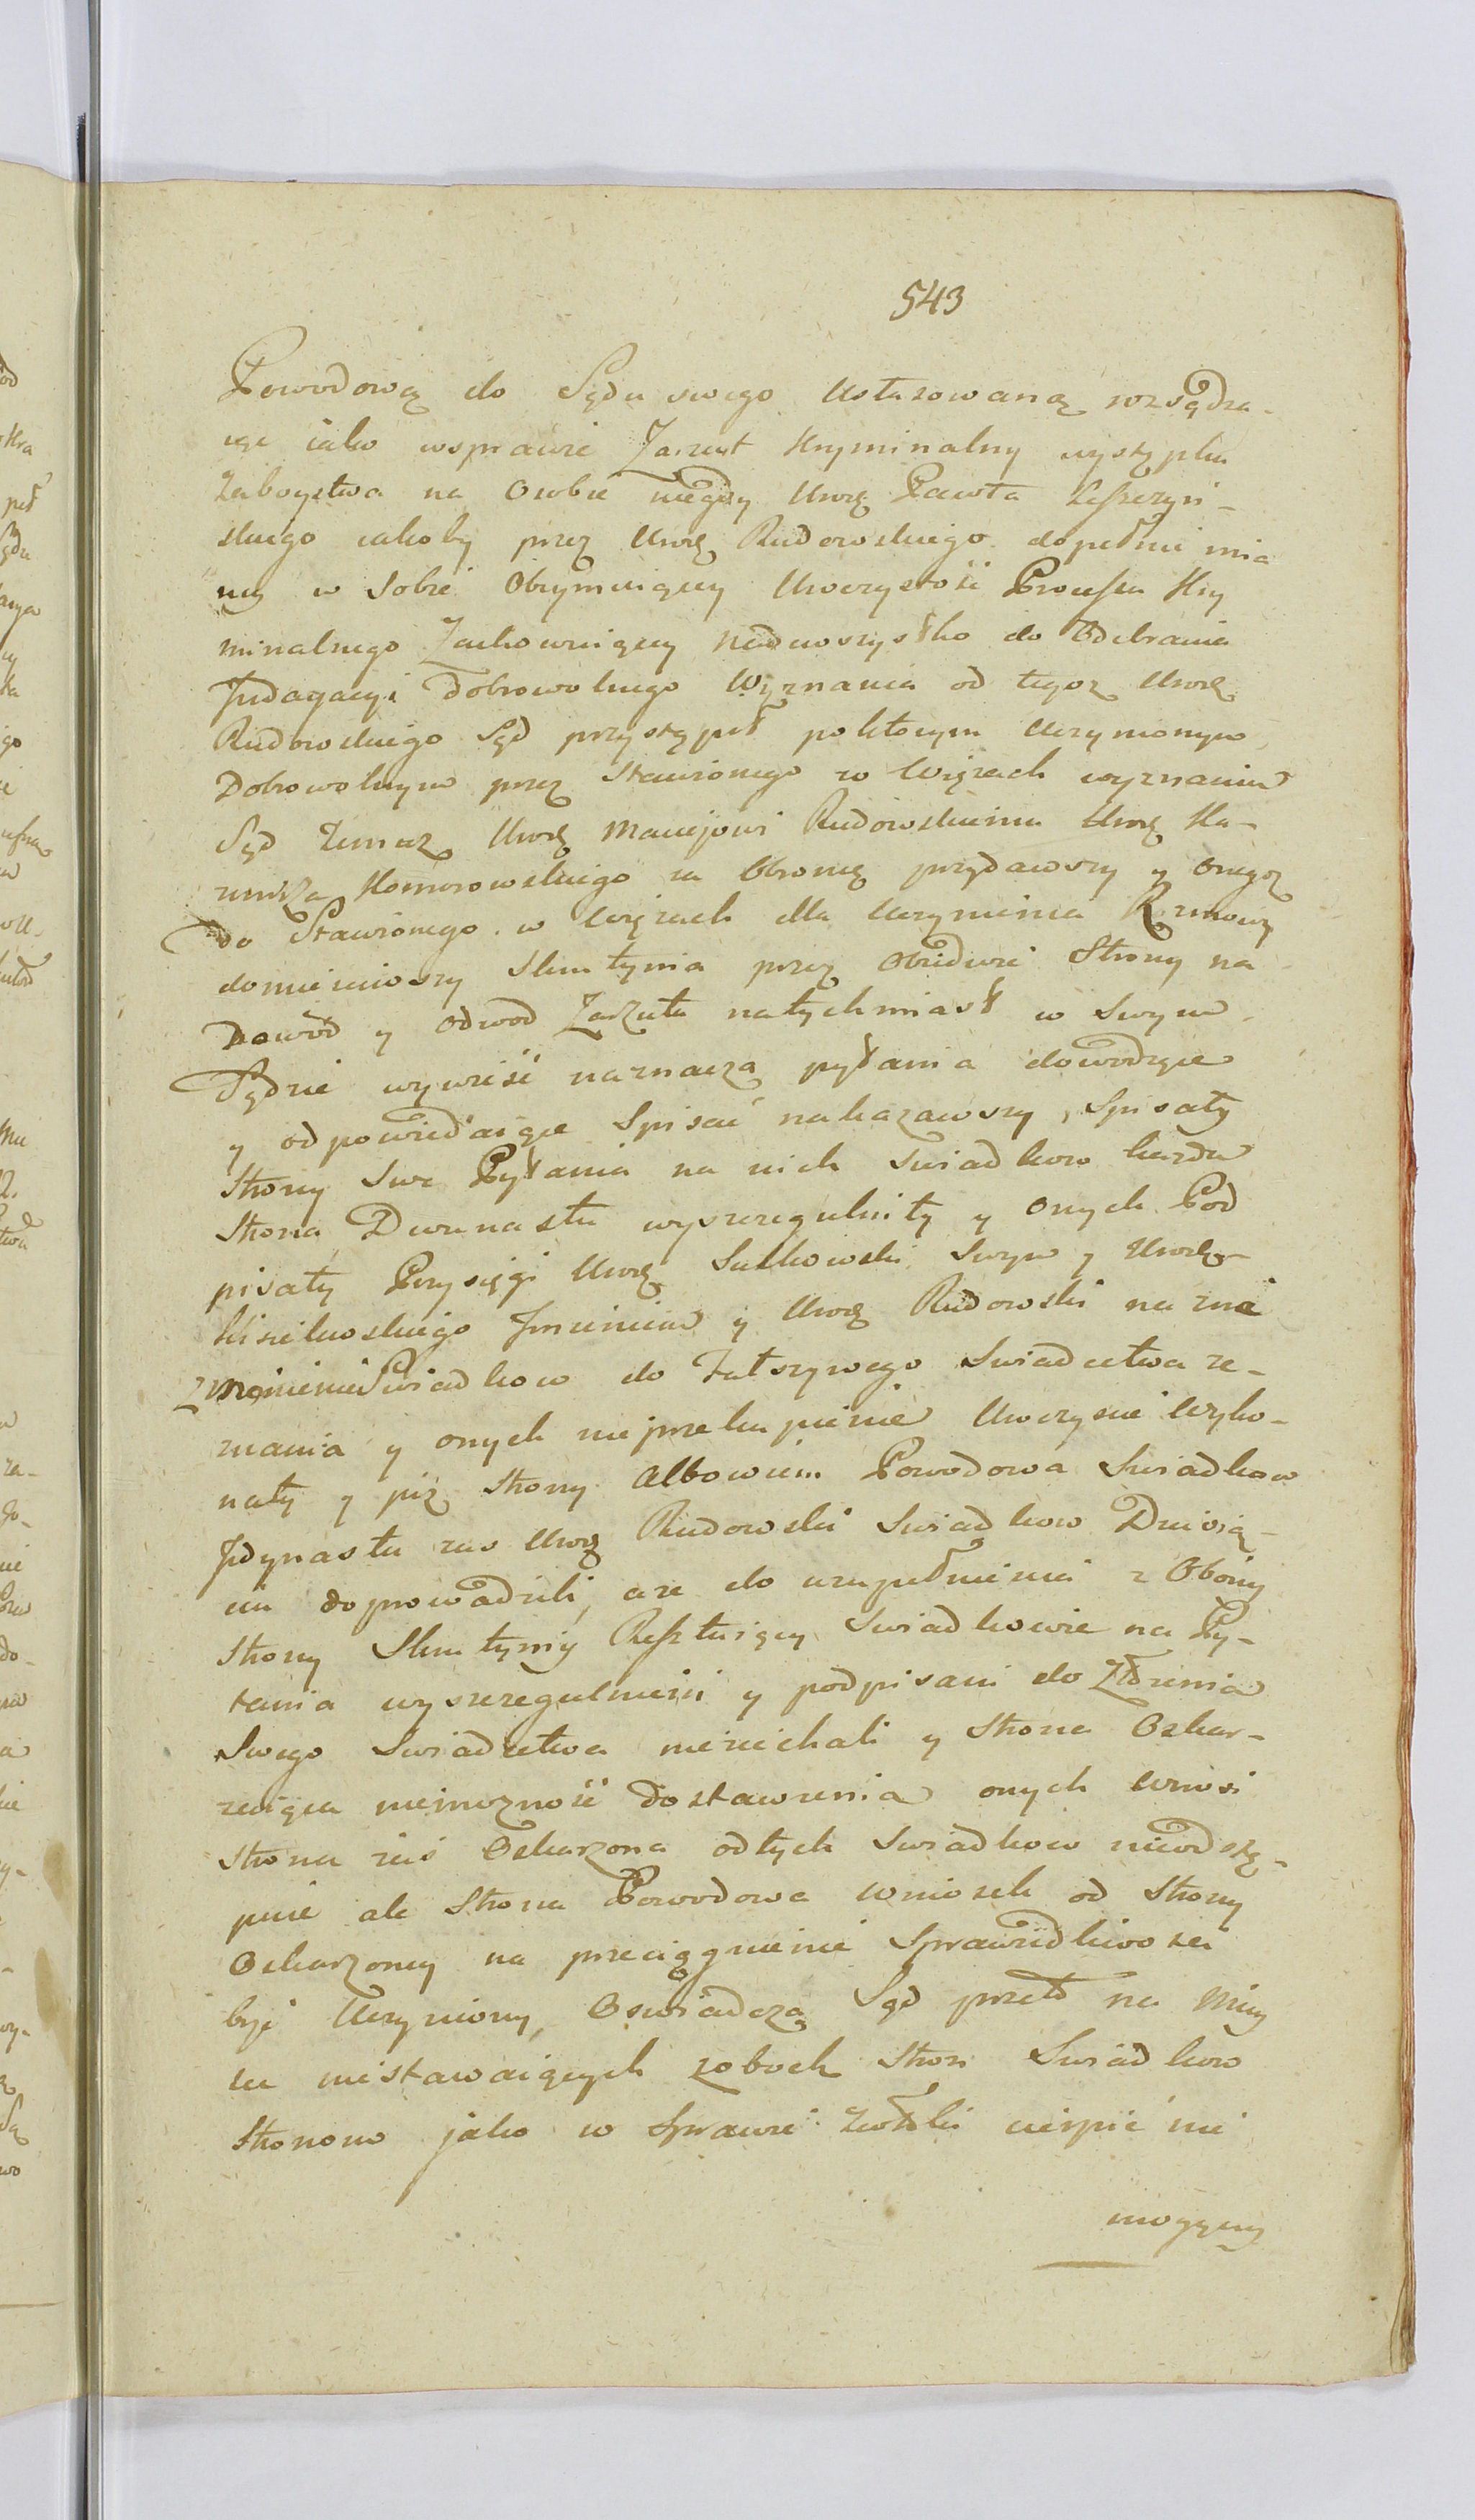 543
Powodową do Sądu swego Ustosowaną rozsądza-
iąc iako wsprawie Zarzut Kryminalny występku
Zaboystwa na Osobie niegdy Urod. Pawła Leszczyń-
skiego iakoby przez Urod. Rudowskiego dopełnienia
w Sobie Obeymuiącey Uroczystość Processu Kry
minalnego Zachowuiący nadewszystko do Odebrania
Indagacyi Dobrowolnego Wyznania od tegoz Urod.
Rudowskiego Sąd przystąpił po którym Uczynionym
Dobrowolnym przez Stawionego w Więzach wyznaniu
Sąd Urod. Maciejowi Rudowskiemu Urod. Ka-
Komorowskiego za Obroncę przydawszy y Onegoz
do Stawionego w Więzach dla Uczynienia Rozmowy
domieściwszy Skrutynia przez Obiedwie Strony na
Dowód y Odwod Zarzutu natychmiast w Swym
Sądzie wywieść naznacza pytania dowodzące
y odpowiedaiące Spisać nakazawszy, Spisały
Strony Swe Pytania na nich Swiadkow kazda
Strona Dwunastu wyszczegulniły y Onych Pod
pisały Przysięgi Urod. Sulkowski Swym y Urod.
Kisielewskiego Imieniem y Urod. Rudowski na
Swiadkow do Fałszywego Swiadectwa ze-
znania y onych nieprzekupienie Uroczyscie Wyko-
nały y już Strony Albowiem Powodowa Swiadkow
Jedynastu zas Urod. Rudowski Swiadkow Dziewię-
ciu doprowadzili, a że do uzupełnienia z Oboiey
Strony Skrutyniy Resztuiący Swiadkowie na Py-
tania wyszczegulnieni y podpisani do Złożenia
Swego Swiadectwa niezjechali y Strona Oskar-
zaiąca niemoznośc dostawienia onych Wnosi
Strona zaś Oskarzona odtych Swiadkow nieodstę-
puie ale Strona Powodowa Wniosek od Strony
Oskarzoney na przeciągnienie Sprawiedliwosci
być Uczyniony, Oswiadcza Sąd przeto na Miey
sce niestawaiących zobuch Stron Swiadkow
Stronom jako w Sprawie Zwłoki cierpieć nie
mogącey